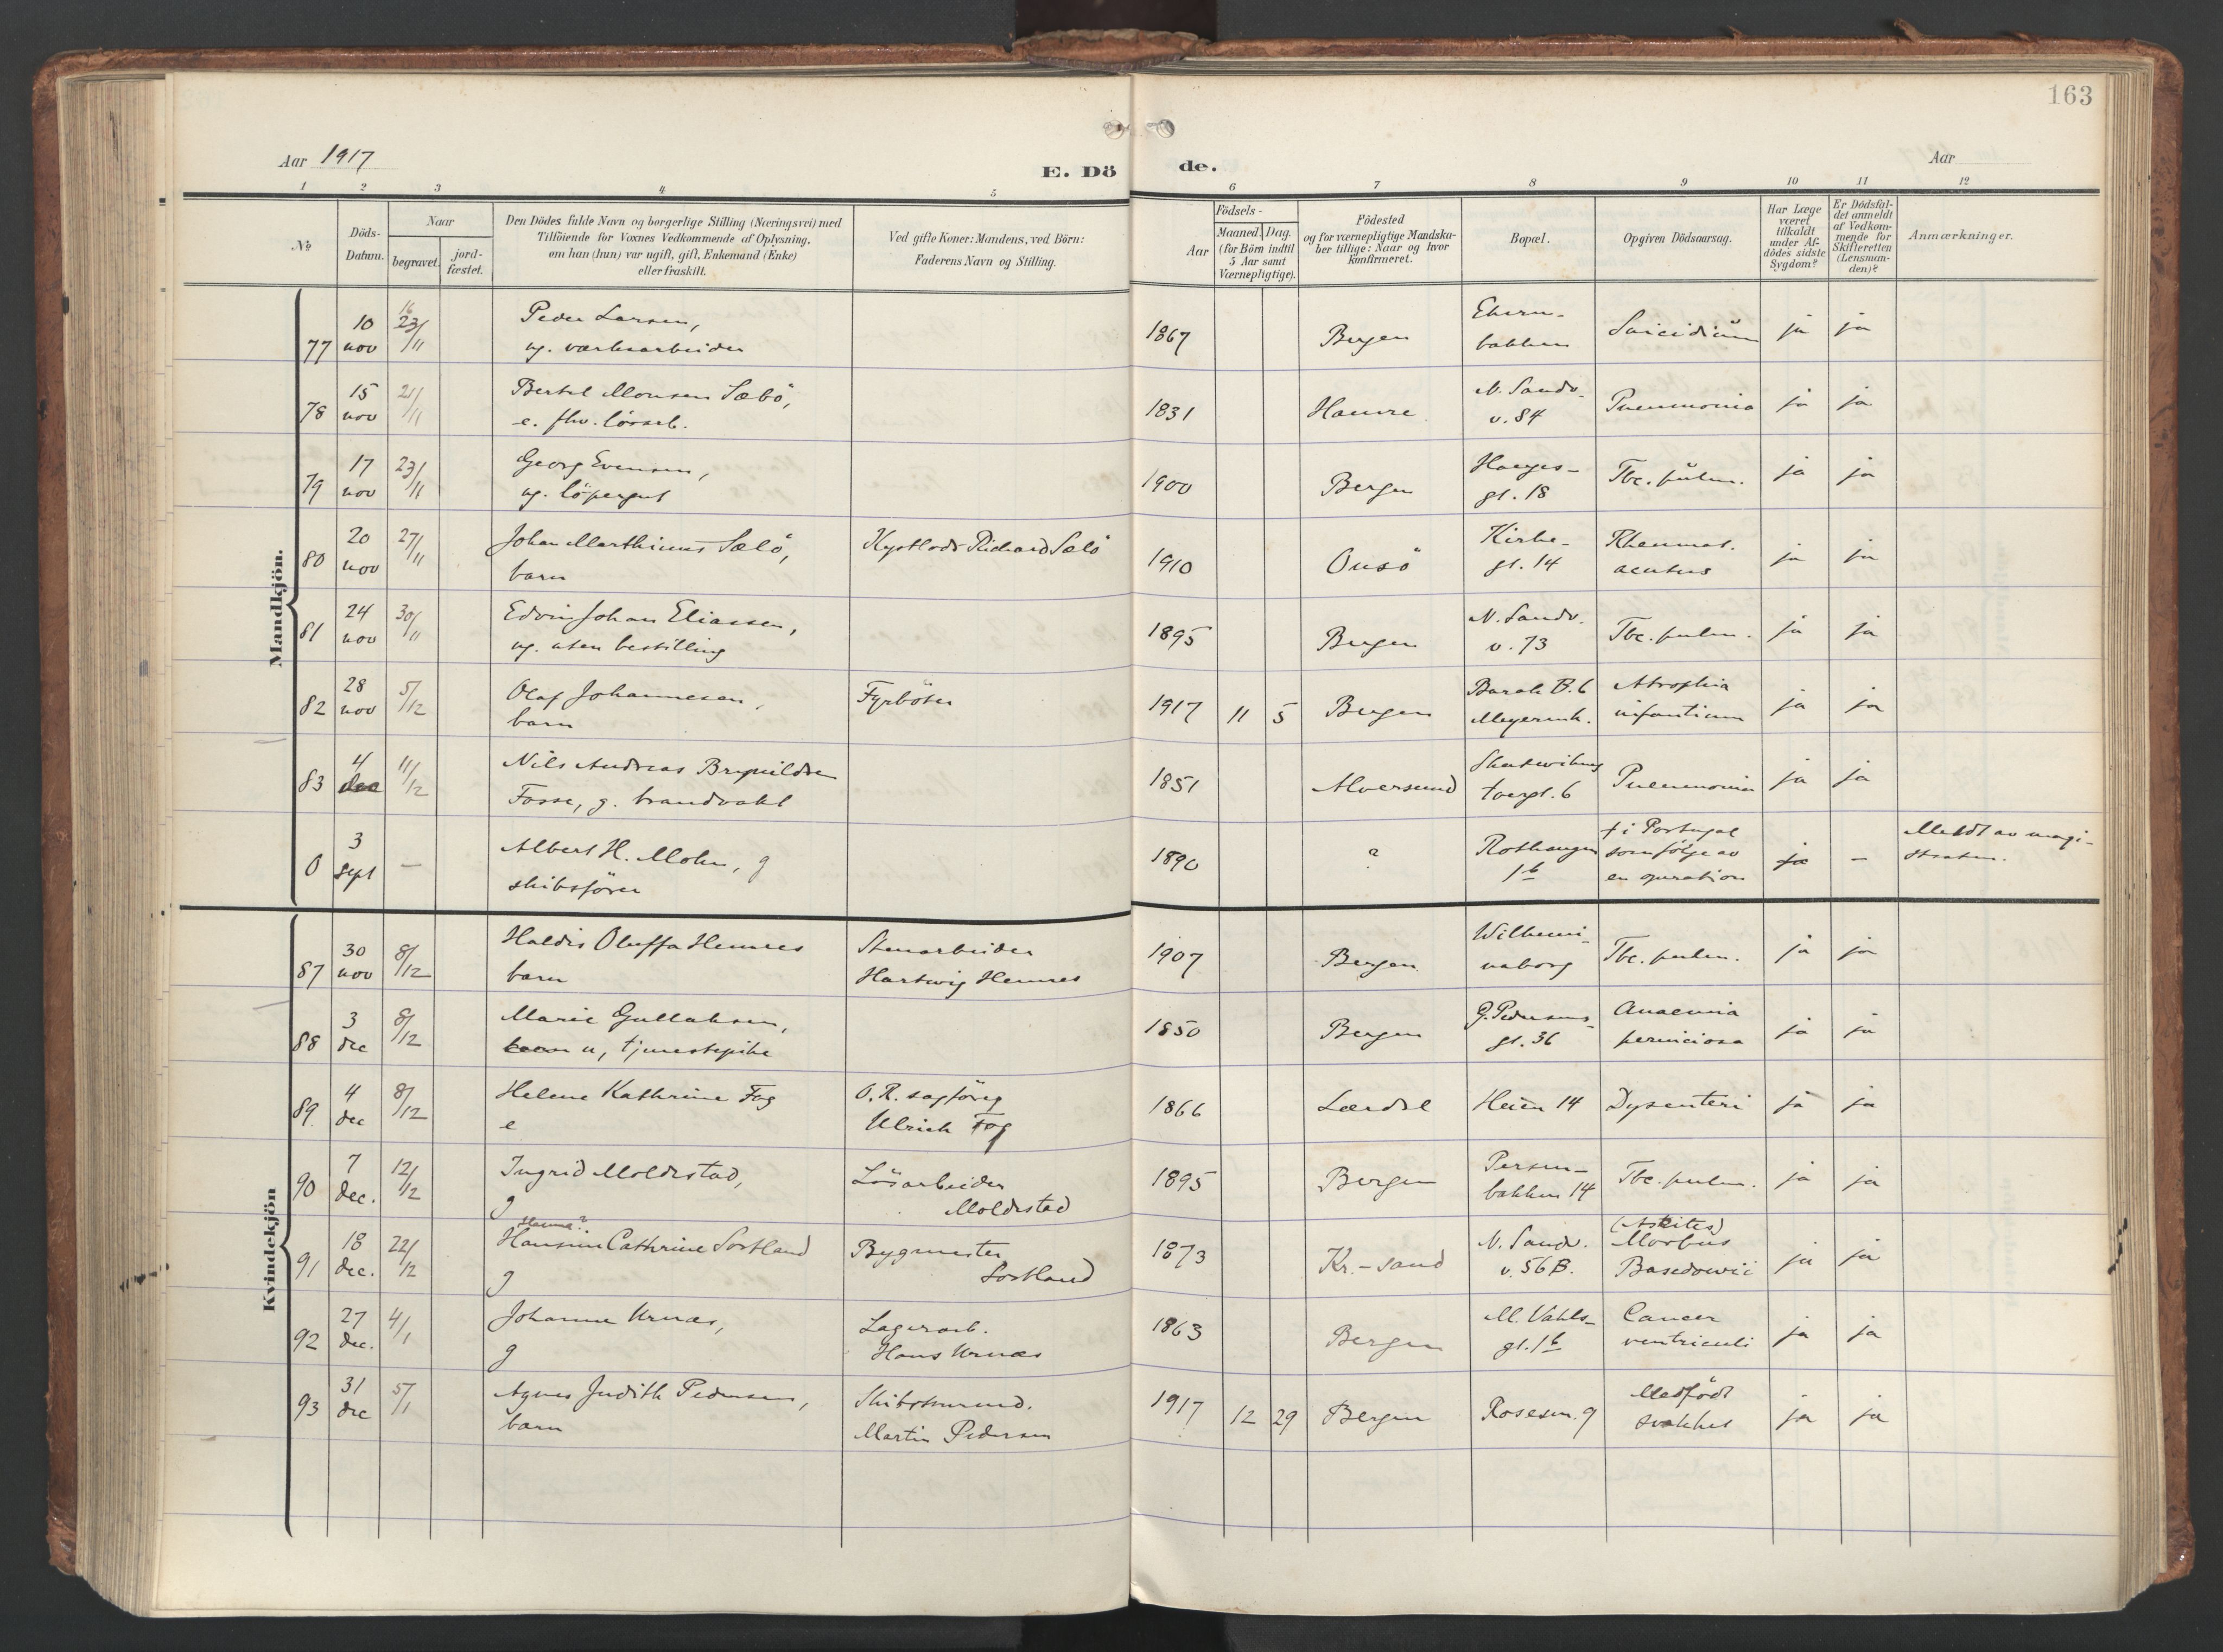 163
Aar 1917
E. Dö
de.
Aar
1 2 3 4 5 6 7 8 9 10 11 12
№
Döds-
Datum.
Naar
begravet.
jord-
fæstet.
Den Dödes fulde Navn og borgerlige Stilling (Næringsvei) med
Tilföiende for Voxnes Vedkommende af Oplysning,
om han (hun) var ugift, gift, Enkemand (Enke)
eller fraskilt.
Ved gifte Koner: Mandens, ved Börn:
Faderens Navn og Stilling.
Födsels-
Aar
Maaned. Dag.
(for Börn indtil
5 Aar samt
Værnepligtige).
Födested
og for værnepligtige Mandska-
ber tillige: Naar og hvor
konfirmeret.
Bopæl.
Opgiven Dödsaarsag.
Har Læge
været
tilkaldt
under Af-
dödes sidste
Sygdom?
Er Dödsfal-
det anmeldt
af Vedkom-
mende for
Skifteretten
(Lensman-
den)?
Anmærkninger.
Mandkjön.
77 10 nov 16 23/11 Peder Larsen,
ug. verksarbeider
1867 Bergen
bakken
Suicidium ja ja
78 15 nov 21/11 Bertel Monsen Sæbö,
e. fhv. lösarb.
1831 Hamre N. Sandv.
v. 84
Pneumonia ja ja
79 17 nov 23/11 Georg Evensen,
ug. löpergut
1900 Bergen Hauges-
gt. 18
Tbc. pulm. ja ja
80 20 nov 27/11 Johan Marthinus Sælö,
barn
Kystlods Richard Sælö
1910 Onsö Kirke-
gt. 14
Rheumat.
acutus
ja ja
81 24 nov 30/11 Edvin Johan Eliassen,
ug. uten bestilling
1895 Bergen N. Sandv.
v. 73
Tbc. pulm. ja ja
82 28 nov 5/12 Olaf Johannesen,
barn
Fyrböter
1917 11 5 Bergen Barak B. 6
Meyermk.
Atrophia
infantium
ja ja
83 4 dec 11/12 Nils Andreas Brynildsen
Fosse, g. brandvakt
1851 Alversund
tvergt. 6
Pneumonia ja ja
0 3 sept – Albert H. Mohn, g
skibsförer
1890 ? Rothaugen
1b
† i Portugal
som fölge av
en operation
ja – Meldt av magi-
straten.
Kvindekjön
87 30 nov 8/12 Haldis Oluffa Hennes
barn
Stenarbeider
Hartwig Hennes
1907 Bergen Wilhemi-
naborg
Tbc. pulm. ja ja
88 3 dec 8/12 Marie Gullaksen,
barn u, tjenestepike
1850 Bergen G. Pedersens-
gt. 36
Anaemia
perniciosa
ja ja
89 4 dec 8/12 Helene Kathrine Fog
e
O. R. sagförer
Ulrich Fog
1866 Lærdal Heien 14 Dysenteri ja ja
90 7 dec. 12/12 Ingrid Moldestad,
g
Lösarbeider
Moldestad
1895 Bergen Persen-
bakken 14
Tbc. pulm. ja ja
91 18 dec. 22/12 Hanna?
Hansine Cathrine Sortland
g
Bygmester
Sortland
1873 Kr.-sand N. Sandv.
v. 56 B.
(Askites)
Morbus
Basedowii
ja ja
92 27 dec. 4/1 Johanne Urnæs,
g
Lagerarb.
Hans Urnæs
1863 Bergen M. Vahls-
gt. 1b
Cancer
ventriculi
ja ja
93 31 dec 5/1 Agnes Judith Pedersen,
barn
Skibstømmermd.
Martin Pedersen
1917 12 29 Bergen Rosesm. 9 Medfödt
svakhet
ja ja